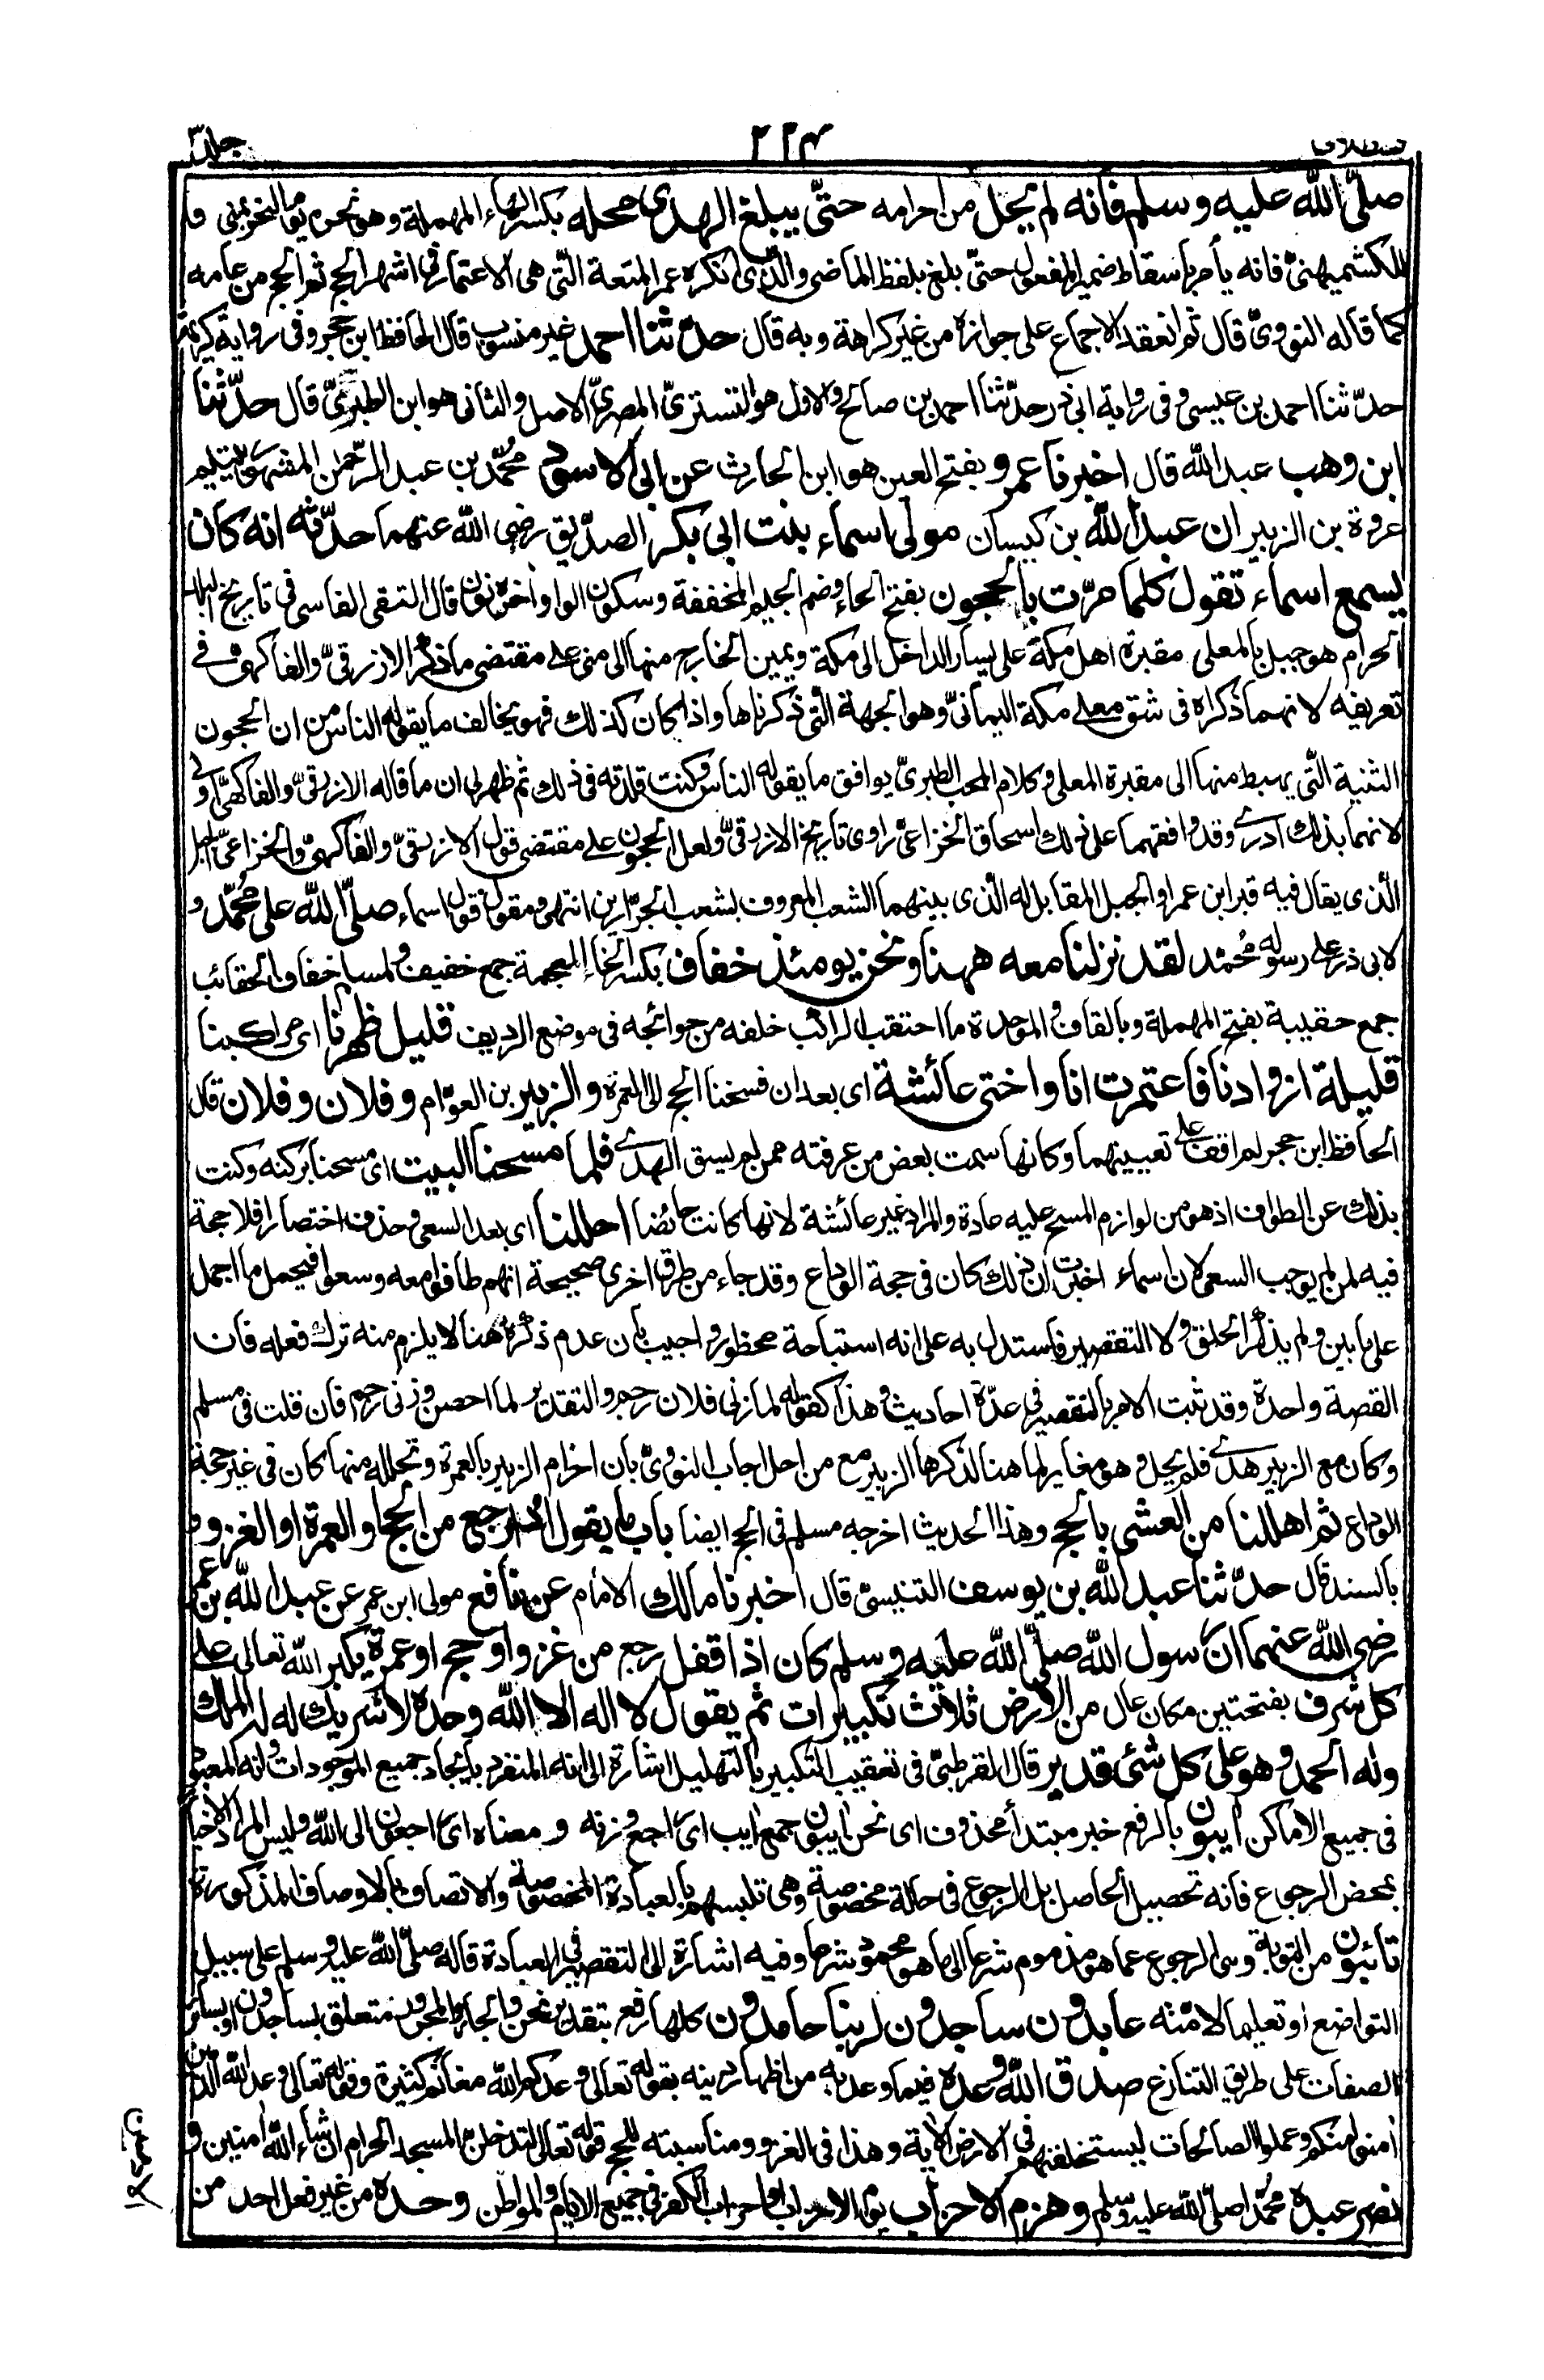 قسطلانی ۲۲۴ جلد۳
صلّى الله عليه وسلم فانه لم يحل من احرامه حتّى يبلغ الهدى محله بكسر الهاء المهملة وهو نحره يوم النحر بمنى
للكشميهنىّ فانه يأمر باسقاط ضمير المفعول حتّى بلغ بلفظ الماضى والّذى انكره عمر المتعة الّتى هى الاعتمار فى اشهر الحج ثم الحج من عامه
كما قاله النووىّ قال ثم انعقد الاجماع على جوازه من غير كراهة وبه قال حدّثنا احمد غير منسوب قال الحافظ ابن حجر وفى رواية كريمة
حدّثنا احمد بن عيسى وفى رواية ابى ذر حدّثنا احمد بن صالح والاول هو التسترىّ المصرىّ الاصل والثانى هو ابن الطبرىّ قال حدّثنا
ابن وهب عبد الله قال اخبرنا عمرو بفتح العين هو ابن الحارث عن ابى الاسود محمّد بن عبد الرّحمن المشهور بيتيم
عروة بن الزبير ان عبد الله بن كيسان مولى اسماء بنت ابى بكر الصدّيق رضى الله عنهما حدّثه انه كان
يسمع اسماء تقول كلما مرّت بالحجون بفتح الحاء وضم الجيم المخففة وسكون الواو اخره نون قال التقى الفاسى فى تاريخ البلد
الحرام هو جبل بالمعلى مقبرة اهل مكة على يسار الداخل الى مكة ويمين الخارج منها الى منى على مقتضى ما ذكر الازرقىّ والفاكهى فى
تعريفه لانهما ذكراه فى شق معلى مكة اليمانىّ وهو الجهة الّتى ذكرناها واذا كان كذلك فهو يخالف ما يقوله الناس من ان الحجون
الثنية الّتى يهبط منها الى مقبرة المعلى وكلام المحب الطبرىّ يوافق ما يقوله الناس وكنت قلدته فى ذلك ثم ظهر لى ان ما قاله الازرقىّ والفاكهىّ اولى
لانهما بذلك ادرى وقد وافقهما على ذلك اسحاق الخزاعىّ راوى تاريخ الازرقىّ ولعل الحجون على مقتضى قول الازرقىّ والفاكهىّ والخزاعىّ الجبل
الّذى يقال فيه قبر ابن عمر او الجبل المقابل له الّذى بينهما الشعب المعروف بشعب الجزّارين انتهى ومقول قول اسماء صلّى الله على محمّد و
لابى ذر على رسوله محمّد لقد نزلنا معه ههنا ونحن يومئذ خفاف بكسر الخاء المعجمة جمع خفيف ولمسلم خفاف الحقائب
جمع حقيبة بفتح المهملة وبالقاف والموحدة ما احتقب الراكب خلفه من حوائجه فى موضع الرديف قليل ظهرنا اى مراكبنا
قليلة ازوادنا فاعتمرت انا واختى عائشة اى بعد ان فسخنا الحج الى العمرة والزبير بن العوّام وفلان وفلان قال
الحافظ ابن حجر لم اقف على تعيينهما وكانها سمت بعض من عرفته ممن لم يسق الهدى فلما مسحنا البيت اى مسحنا بركنه وكنت
بذلك عن الطواف اذ هو من لوازم المسح عليه عادة والمراد غير عائشة لانها كانت حائضا احللنا اى بعد السعى وحذف اختصارا فلا حجة
فيه لمن لم يوجب السعى لان اسماء اخبرت ان ذلك كان فى حجة الوداع وقد جاء من طرق اخرى صحيحة انهم طافوا معه وسعوا فيحمل ما اجمل
على ما بين ولم يذكر الحلق ولا التقصير فاستدل به على انه استباحة محظور واجيب بان عدم ذكره هنا لا يلزم منه ترك فعله فان
القصة واحدة وقد ثبت الامر بالتقصير فى عدّة احاديث وهذا كقوله لما زنى فلان رجم والتقدير لما احصن وزنى رجم فان قلت فى مسلم
وكان مع الزبير هدى فلم يحل وهو مغاير لما هنا لذكرها الزبير مع من احل اجاب النووىّ بان احرام الزبير بالعمرة وتحلله منها كان فى غير حجة
الوداع ثم اهللنا من العشى بالحج وهذا الحديث اخرجه مسلم فى الحج ايضا باب ما يقول اذا رجع من الحج او العمرة او الغزو وبه
بالسند قال حدّثنا عبد الله بن يوسف التنيسىّ قال اخبرنا مالك الامام عن نافع مولى ابن عمر عن عبد الله بن عمر
رضى الله عنهما ان رسول الله صلّى الله عليه وسلم كان اذا قفل رجع من غزو او حج او عمرة يكبر الله تعالى على
كل شرف بفتحتين مكان عال من الارض ثلاث تكبيرات ثم يقول لا اله الا الله وحده لا شريك له له الملك
وله الحمد وهو على كل شئ قدير قال القرطبىّ فى تعقيب التكبير بالتهليل اشارة الى انه المنفرد بايجاد جميع الموجودات وانه المعبود
فى جميع الاماكن ايبون بالرفع خبر مبتدأ محذوف اى نحن ايبون جمع ايب اى راجع وزنه ومعناه اى راجعون الى الله وليس المراد الاخبار
بمحض الرجوع فانه تحصيل الحاصل بل الرجوع فى حالة مخصوصة وهى تلبسهم بالعبادة المخصوصة والاتصاف بالاوصاف المذكورة
تائبون من التوبة وهى الرجوع عما هو مذموم شرعا الى ما هو محمود شرعا وفيه اشارة الى التقصير فى العبادة قاله صلّى الله عليه وسلم على سبيل
التواضع او تعليما لامّته عابدون ساجدون لربنا حامدون كلها رفع بتقدير نحن والجار والمجرور متعلق بساجدون او بسائر
الصفات على طريق التنازع صدق الله وعده فيما وعد به من اظهار دينه بقوله تعالى وعدكم الله مغانم كثيرة وقوله تعالى وعد الله الّذين
امنوا منكم وعملوا الصالحات ليستخلفنهم فى الارض الاية وهذا فى الغزو ومناسبته للحج قوله تعالى لتدخلن المسجد الحرام ان شاء الله امنين و
نصر عبده محمّدا صلّى الله عليه وسلم وهزم الاحزاب يوم الاحزاب او احزاب الكفر فى جميع الايام والمواطن وحده من غير فعل احد من